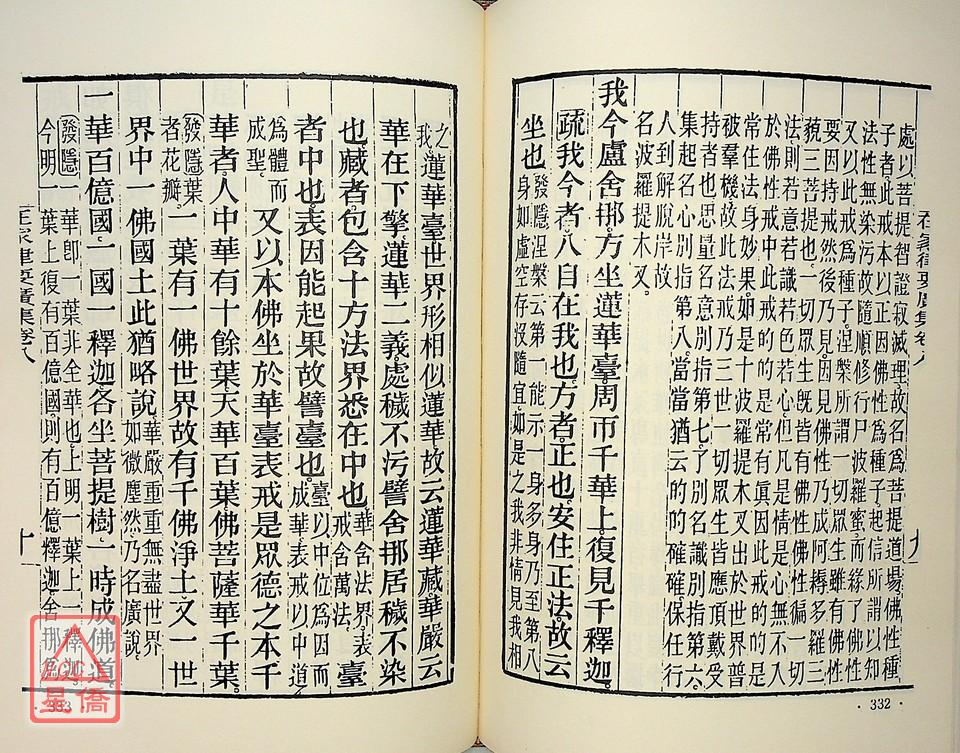 在家律要廣集卷八
處以菩提智證寂滅理故名為菩提道場佛性種
子者此戒本以正因佛性為種子起信所謂以知
法性無染污故隨順修行尸波羅蜜而緣了佛性
又以此戒為種子涅槃所謂一切眾生雖有佛性
要因持戒然後乃見因見佛性乃成阿耨多羅三
藐三菩提也一切眾生既皆有佛性佛性徧一切
法則若意若識若色若心但凡是情是心無不入
於佛性戒中此時的的是常有眞因此戒的的是
常住法身妙果如是十波羅提木叉出於世界普
被羣機故此法戒乃三世一切眾生皆應頂戴受
持者也思量名意別指第七了別名識別指第六
集起名心別指第八當當猶云的的確確保任行
人到解脫岸故
名波羅提木叉
我今盧舍那方坐蓮華臺周帀千華上復見千釋迦
疏我今者八自在我也方者正也安住正法故云
坐也發隱涅槃云第一能示一身多身乃至第八
身如虛空存沒隨宜如是之我非情見我相
·332·
之
我蓮華臺世界形相似蓮華故云蓮華藏華嚴云
華在下擎蓮華二義處穢不污譬舍那居穢不染
也藏者包含十方法界悉在中也華含法界表戒含萬法臺
者中也表因能起果故譬臺也臺以中位為因而成華表戒以中道
為體而成聖又以本佛坐於華臺表戒是眾德之本千
華者人中華有十餘葉天華百葉佛菩薩華千葉
發隱葉者花瓣一葉有一佛世界故有千佛淨土又一世
界中一佛國土此猶略說華嚴重重無盡世界如微塵然乃名廣說
一華百億國一國一釋迦各坐菩提樹一時成佛道
發隱一華即一葉非全華也上明一葉上一釋迦
今明一葉上復有百億國則有百億釋迦舍那
十
·333·
星僑